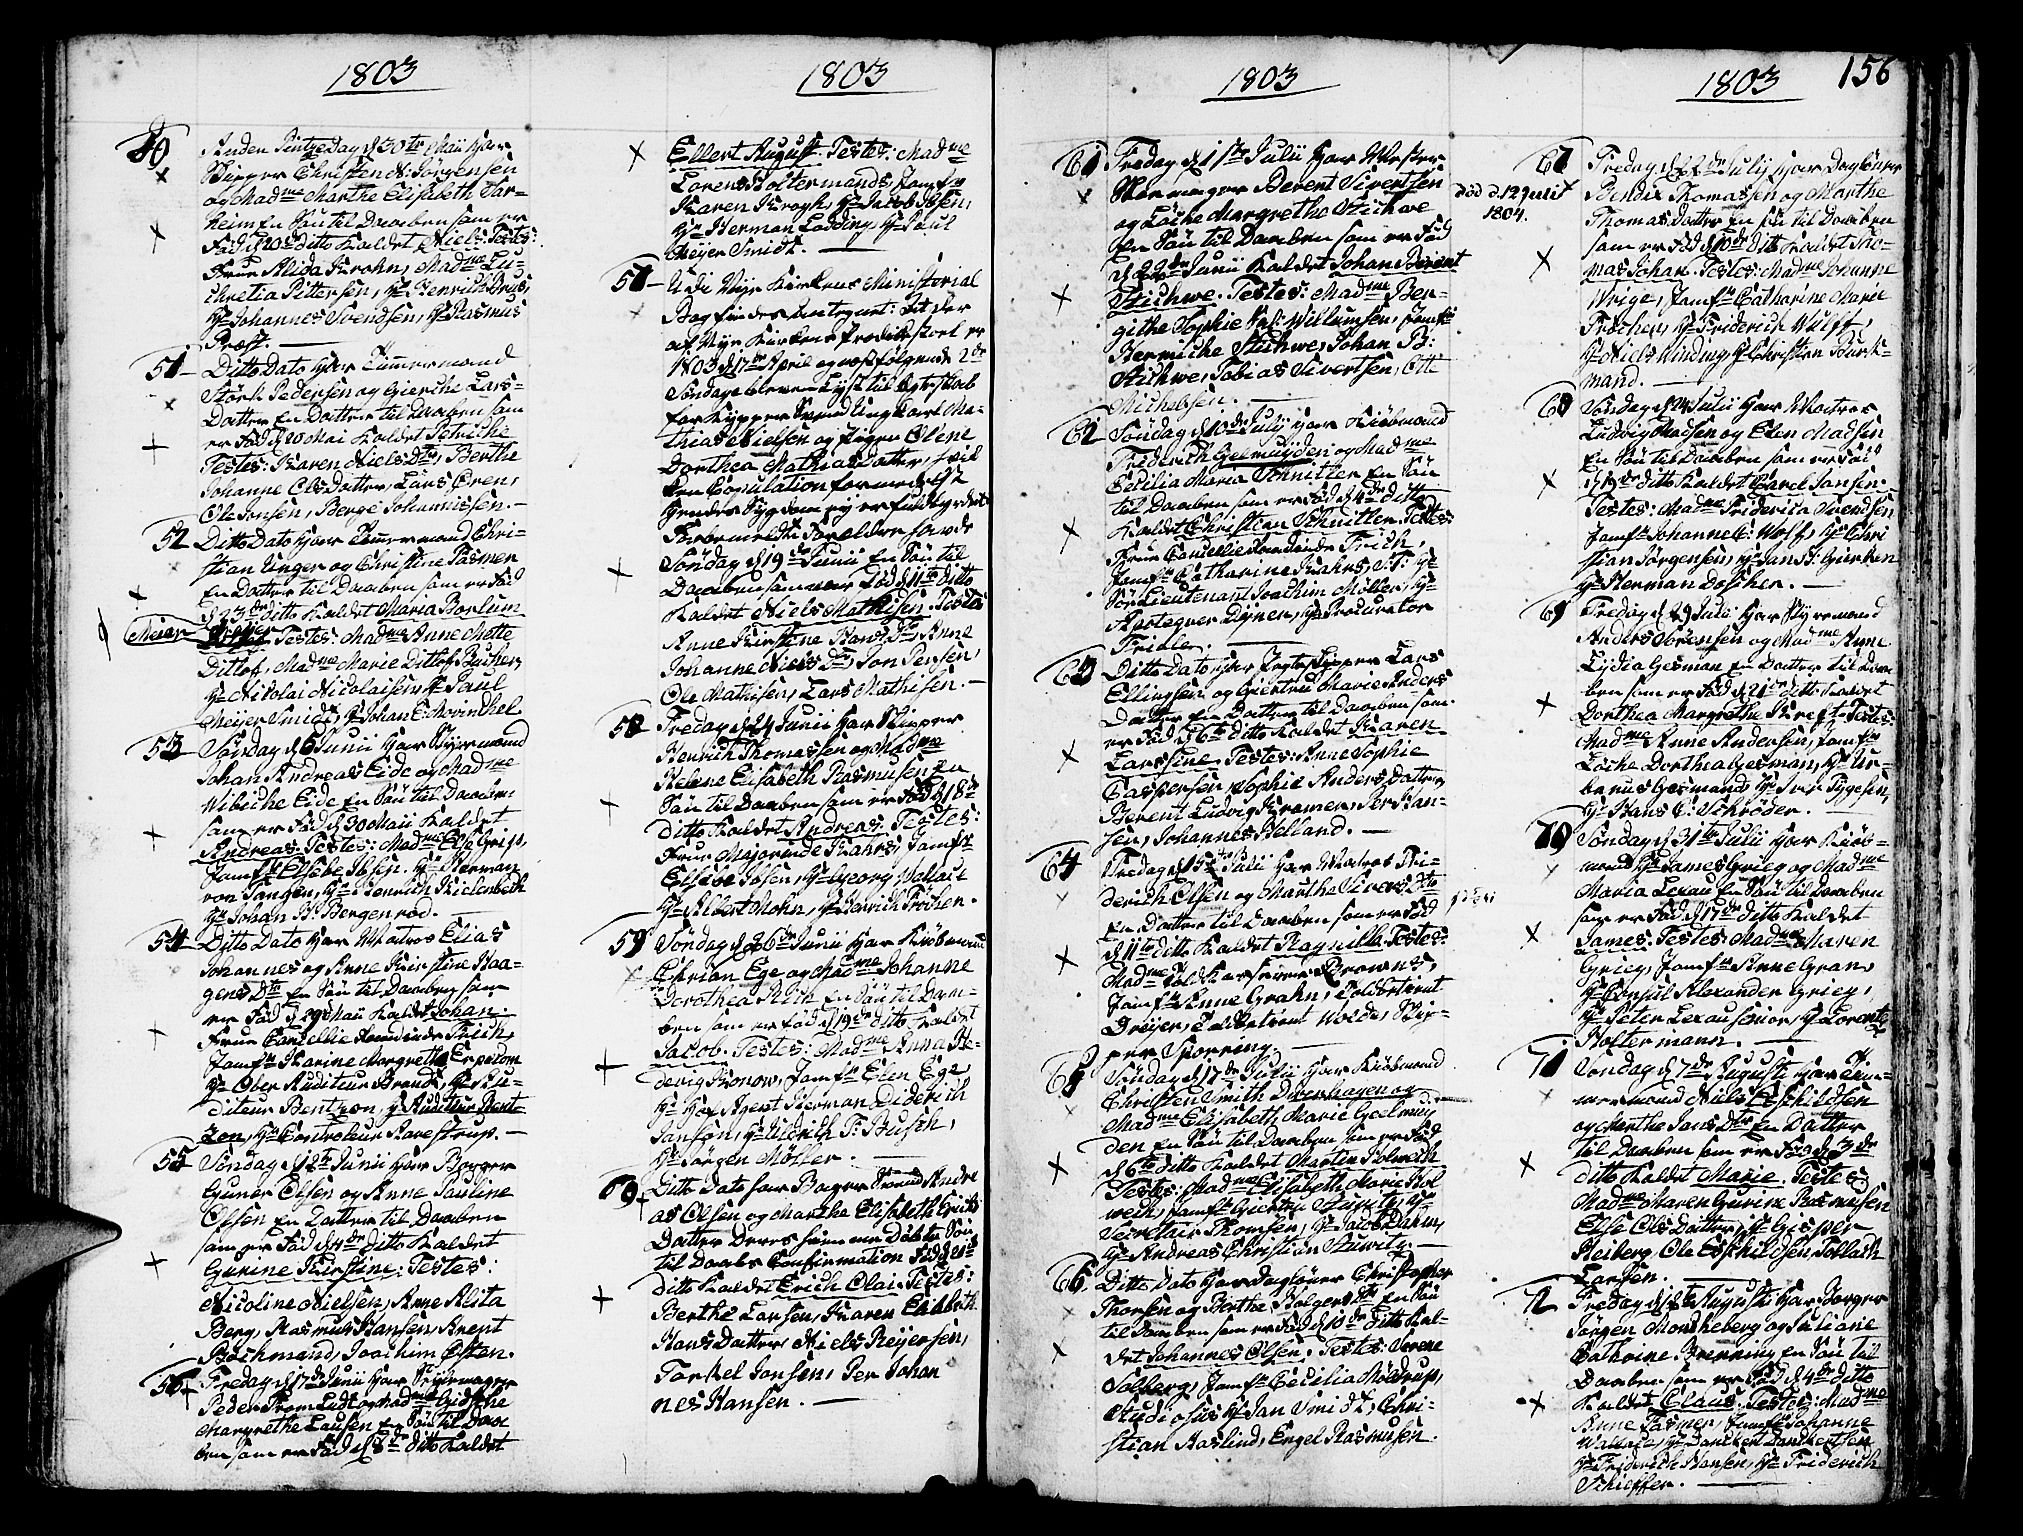 1803
50
Anden Pintzedag d 30te Maii har
Skipper Christen N: Jørgensen
og Madme Marthe Elisabeth Tar-
heim En Søn til Daaben som er
Fød d 20de ditto Kaldet Niels. Testes:
Frue Alida Krohn, Madme Lu-
chretia Pittersen, Hr Henrich Brus,
Hr Johannes Svendsen, Hr Rasmus
Prost.
51
Ditto Dato har Timmermand
Størk Pedersen og Gierche Lars-
Datter En Datter til Daaben som
er Fød d 20 Mai Kaldet
Testes: Karen Niels Dtr, Berthe
Johanne Ols Datter, Lars Eren,
Ole Jonsen, Berge Johannissen.
52
Ditto Dato har Timmermand Chri-
stian Unger og Christine Pasmer
En Datter til Daaben som er Fød
d 23de ditto Kaldet Maria Borlum
Meier
Testes: Madme Anne Mette
Ditlof, Madme Marie Ditlof Bucher,
Hr Nikolai Nicolaisen, Hr Paul
Meijer Smidt, Hr Johan C: Mowinchel
53
Søndag d 5 Junii har Styermand
Johan Andreas Eide og Madme
Wibiche Eide En Søn til Daaben
som er Fød d 30 Maii Kaldet
Andreas. Testes: Madme Else Grip,
Jomfr Elsebe Ibsen. Hr Herman
von Tangen, Hr Henrich
Hr Johan H: Bergenrod.
54
Ditto Dato har Matros Elias
Johannes og Anne Kirstine Haa-
gens Dtr En Søn til Daaben som
er Fød d 29 Maii Kaldet Johan.
Frue Cancellie Raadinde Frich,
Jomfr Karine Margrethe
Hr Ober Auditeur Brandt, Hr Au-
diteur Bentzon, Hr Auditeur Bent-
zon, Hr Controleur Ravestrup.
55
Søndag d 12te Junii har Borger
Guner Olsen og Anne Pauline
Olsen En Datter til Daaben
som er Fød d 4de ditto Kaldet
Gurine Kirstine. Testes:
Nicoline Nielsen, Anne Alita
Berg, Rasmus Hansen, Arent
Bochmand, Joachim Olsen.
56
Fredag d 17de Junii har Styrmager
Peder From Ludt og Madme Gidsche
Margrethe Lausen En Søn til Daa-
ben som er Fød d 8de ditto Kaldet
1803
Ellert August. Testes: Madme
Lorens Holtermands, Jomfr
Karen Krogh, Hr Jacob Ibsen,
Hr Herman Lodding, Hr Paul
Meijer Smidt.
57
Udi Nye Kirkens Ministerial
Bog findes antegnet: At der
af Nye Kirkens Prædikestoel er
1803 d 17de April og næstfølgende 2de
Søndage bleven Lyst til Egteskab
for Kypper Svend Ungkarl Ma-
thias Nielsen og Pigen Olene
Dorthea Mathias Datter, hvil
ken Copulation formedelst
hendes Sygdom ej er fuldbyrdet
Forbemeldte Forældre havde
Søndag d 19de Junii En Søn til
Daaben som var Fød d 11te ditto
Kaldet Niels Mathisen. Testes
Anne Kirstine Hans Dtr Anne
Johanne Niels Dtr, Jon Persen,
Ole Mathisen, Lars Mathisen.
58
Fredag d 24 Junii har Skipper
Henrich Thomassen og Madme
Helene Elisabeth Rasmusen En
Søn til Daaben som er Fød d 18de
ditto Kaldet Andreas. Testes:
Frue Majorinde Krahrs, Jomfr
Elsebe Ibsen, Hr Georg
Hr Albert Mohn, Hr Henrich Fröchen.
59
Søndag d 26de Junii har Kiøbmand
Chrian Ege og Madme Johanne
Dorothea Rich En Søn til Daa-
ben som er Fød d 19de ditto Kaldet
Jacob. Testes: Madme Anna He-
devig Konow, Jomfr Elen Ege
Hr Hof Agent Herman Diderich
Janson, Hr Ulrich F: Busch,
Hr Jørgen Møller.
60
Ditto Dato har Borger Svend Andre
as Olsen og Marthe Elisabeth Erichs
Datter Deres hiemme Døbte Søn
til Daabs Confirmation Fød d 21de
ditto Kaldet Erich Olai. Testes:
Berthe Larsen, Karen Elisabeth
Hans Datter, Niels Reijersen,
Torkel Jonsen, Per Johan
nes Hansen.
1803
61
Fredag d 1ste Julii har Mester
Skomager Berent Sivertsen
og Løche Margrethe Stichwe
En Søn til Daaben som er Fød
d 22de Junii Kaldet Johan Berent
Stichwe. Testes: Madme Ber-
githe Sophie Willumsen, Jomfr
Hermiche Stichwe, Johan B:
Stichwe, Tobias Sivertsen, Otte
Michelsen.
Død d. 12 Julii
1804.
62
Søndag d 10de Julii har Kiøbmand
Friderich Gelmuyden og Madme
Cecilia Maria Schnitler En Søn
til Daaben som er Fød d 4de ditto
Kaldet Christian Schnitler. Testes:
Frue Cancellie Raadinde Frich,
Jomfr Catharine Krahrs, S:T: Hr
Sør Lieutenant Joachim Møller, Hr
Apoteqver Dyner, Hr Procurator
Fridler.
63
Ditto Dato har Jegte Skipper Lars
Ellingsen og Giertrud Marie Anders
Datter En Datter til Daaben som
er Fød d 6te ditto Kaldet Karen
Larssine. Testes: Anne Sophie
Caspersen, Sophie Anders Datter,
Berent Ludvig Kramer, Per Han-
sen, Johannes Helland.
64
Fredag d 15de Julii har Matros Fri-
derich Olsen og Marthe Sivers Dtr
En Datter til Daaben som er Fød
d 11te ditto Kaldet Ragnilla. Testes:
Madme Toldkasserer Browns,
Jomfr Anne Grahn, Toldbetient
Dreyer, Toldbetient Wolde, Skip-
per Sporring.
65
Søndag d 17de Julii har Kiøbmand
Christen Smith Dwerhagen og
Madme Elisabeth Marie Geelmuy
den En Søn til Daaben som er Fød
d 6te ditto Kaldet Martin Holweth
Testes: Madme Elisabeth Marie Hol
weth, Jomfr Giertru Stuwitz, Hr
Secretair Thomsen, Hr Jacob Dahm,
Hr Andreas Christian Stuwitz.
66
Ditto Dato har Dagløner Christopher
Thorsen og Berthe Holgers Dtr En Søn
til Daaben som er Fød d 10de ditto Kal-
det Johannes Olsen. Testes: Verene
Solberg, Jomfr Cecilia Mødrup,
Studiosus Hr Jan Smidt, Chri-
stian Haslund, Engel Rasmusen.
1803
156
67
Fredag d 22de Julij har Dagløner
Bendix Thomassen og Marthe
Thomas Datter En Søn til Daaben
som er Fød d 10de ditto Kaldet Tho-
mas Johan. Testes: Madme Johanne
Wrige, Jomfr Catharine Marie
Frøchen, Hr Friderich Wulff,
Hr Niels Winding, Hr Christen Burk-
mand.
68
Søndag d 24 Julii har Matros
Ludvig Madsen og Elen Madsen
En Søn til Daaben som er Fød
d 19de ditto Kaldet Carel Jansen.
Testes: Madme Friderica Svendsen
Jomfr Johanne C: Wolff, Hr Chri
stian Jørgensen, Hr Jan H: Gierken
Hr Herman Döscher.
69
Fredag d 29 Juli har Styrmand
Anders Sørensen og Madme Anne
Lydia Gesman En Datter til Daa
ben som er Fød d 21de ditto Kaldet
Dorthea Margrethe Kreft. Testes:
Madme Anne Andersen, Jomfr
Løche Dorthea Gesman, Hr Ur-
banus Gesmand, Hr Iver Tygesen,
Hr Hans C: Schrøder.
70
Søndag d 31te Julii har Kiøb-
mand Hr James Grieg og Madme
Maria Lexau En Søn til Daaben
som er Fød d 17de ditto Kaldet
James. Testes: Madme Maren
Grieg, Jomfr Anne Gran,
Hr Consul Alexander Grieg,
Hr Peter Lexau senior, Hr Lorentz
Holtermann.
71
Søndag d 7de Augusti har Tim-
mermand Niels Eschildsen
og Marthe Jans Dtr En Datter
til Daaben som er Fød d 3de
ditto Kaldet Marie. Testes
Madme Maren Gurine Rasmusen
Else Ols Datter, Hr Gisper
Heiberg, Ole Eschildsen, Tollach
Larsen.
72
Fredag d 12te Augusti har Borger
Jørgen Moncheberg og Juliane
Cathrine Brenning En Søn til
Daaben som er Fød d 4de ditto
Kaldet Claus. Testes: Madme
Anne Fasmer, Jomfr Johanne
Wallace, Hr Danckert Danckertsen
Hr Friderich Hansen, Hr Friderich
Schieffer.